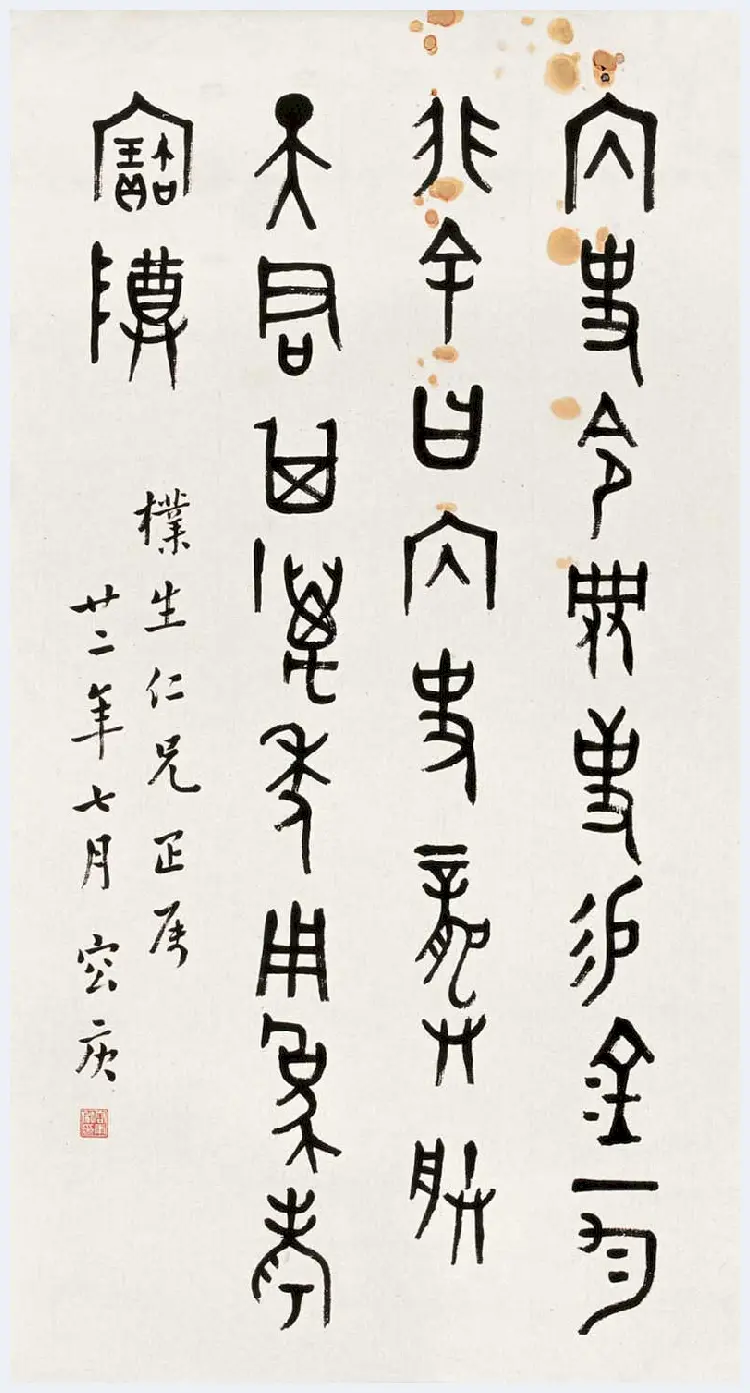 内史令事易金一勻
非余曰内史龏朕
天君其萬年用為考
寶尊
樸生仁兄正屬
廿二年七月 容庚